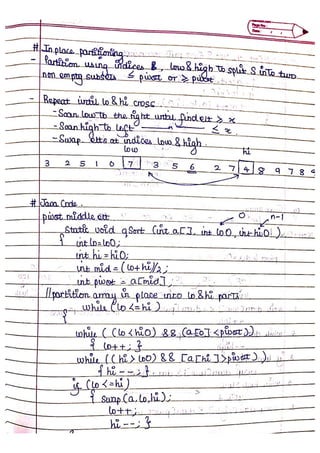 # Inplace partitioning
- Partition using indices, low & high to split S into two
non empty subsets ≤ pivot or ≥ pivot
- Repeat until lo & hi cross
- Scan low to the right until find elt ≥ x
- Scan high to left ——— " ——— ≤ x.
- Swap elts at indices low & high.
low hi
3 2 5 1 0 7 3 5 6 2 7 4 8 9 7 8 9
# Java Code.
pivot middle elt. 0 n-1
static void qSort (int a[], int lo0, int hi0)
{ int lo=lo0;
int hi = hi0;
int mid = (lo+hi)/2;
int pivot = a[mid];
//partition array in place into lo & hi parts
while (lo <= hi)
{
while ( (lo < hi0) && (a[lo] < pivot))
{ lo++; }
while ((hi > lo0) && [a[hi] > pivot))
{ hi--; }
if (lo <= hi)
{ swap (a, lo, hi);
lo++;
hi--; }